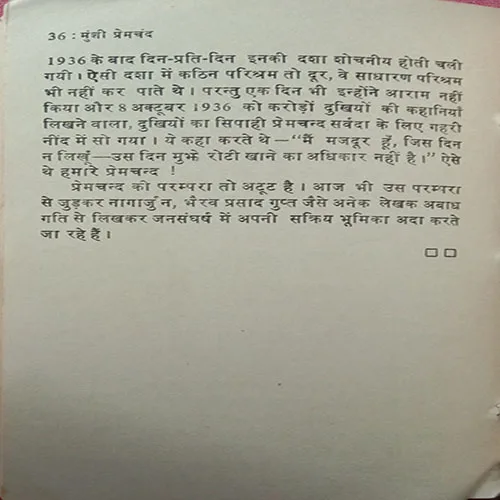 36 : मुंशी प्रेमचंद
1936 के बाद दिन-प्रति-दिन इनकी दशा शोचनीय होती चली
गयी । ऐसी दशा में कठिन परिश्रम तो दूर, वे साधारण परिश्रम
भी नहीं कर पाते थे । परन्तु एक दिन भी इन्होंने आराम नहीं
किया और 8 अक्टूबर 1936 को करोड़ों दुखियों की कहानियाँ
लिखने वाला, दुखियों का सिपाही प्रेमचन्द सर्वदा के लिए गहरी
नींद में सो गया । ये कहा करते थे —“मैं मजदूर हूँ, जिस दिन
न लिखूँ—उस दिन मुझे रोटी खाने का अधिकार नहीं है ।” ऐसे
थे हमारे प्रेमचन्द !
प्रेमचन्द की परम्परा तो अटूट है । आज भी उस परम्परा
से जुड़कर नागार्जुन, भैरव प्रसाद गुप्त जैसे अनेक लेखक अबाध
गति से लिखकर जनसंघर्ष में अपनी सक्रिय भूमिका अदा करते
जा रहे हैं ।